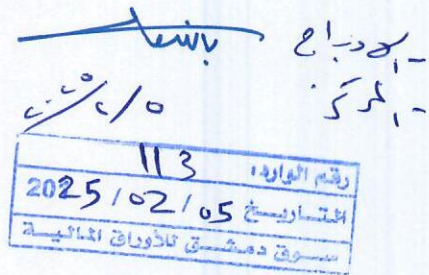 - الادراج
- المركز
رقم الوارد: 113
التاريخ 2025/02/05
سوق دمشق للأوراق المالية